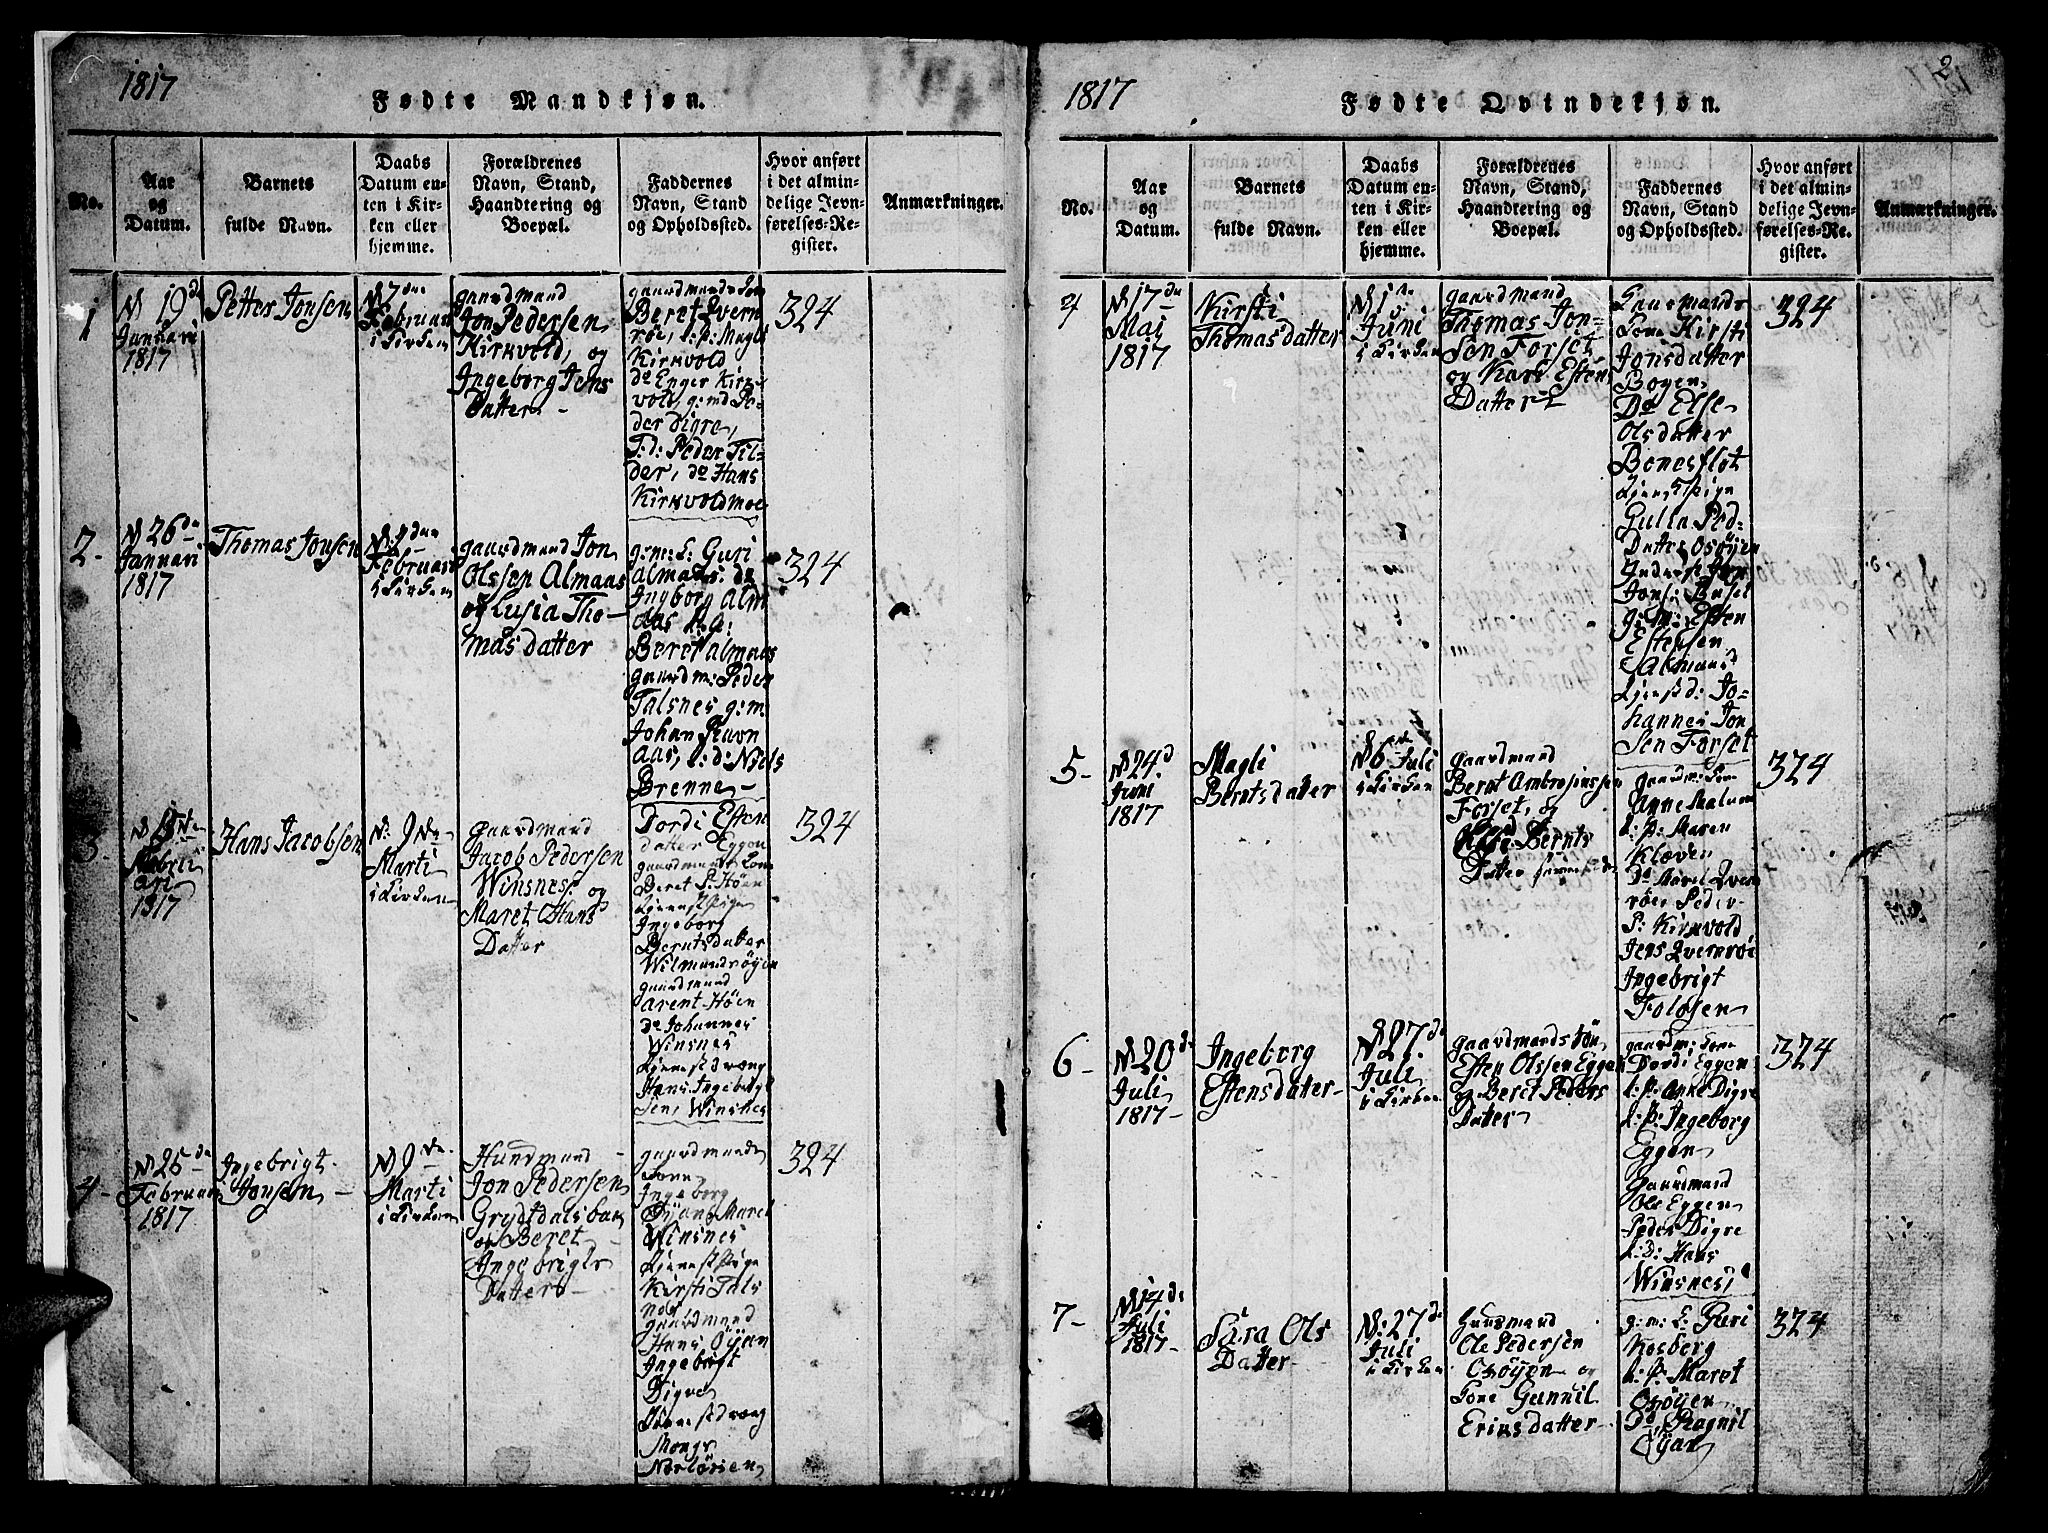 1817
Fødte Mandkjøn.
No.
Aar
og
Datum.
Barnets
fulde Navn.
Daabs
Datum en-
ten i Kir-
ken eller
hjemme.
Forældrenes
Navn, Stand,
Haandtering og
Boepæl.
Faddernes
Navn, Stand
og Opholdssted.
Hvor anført
i det almin-
delige Jevn-
førelses-Re-
gister.
Anmærkninger.
1
N 19de
Januari
1817
Petter Jonsen
Februari
i Kirken
gaardmand
Jon Pedersen
Kirkvold, og
Ingeborg Jens
Datter
Beret Qvern
røe, Magli
Kirkvold
do Enger Kirk-
vold, g:md Pe-
der Digre,
T:d: Peder Til-
der, do Hans
Kirkvoldmoe
324
2-
N 26de
Januari
1817
Thomas Jonsen
Februari
i Kirken
gaardmand Jon
Olssen Almaas
og Lusia Tho-
mas datter
g:m: k: Guri
Almaas: do
Ingborg Alm
aas
Beret Almaas
gaardm: Peder
Talsnes g:m:
Johan Ravn
aas, t:d: Niels
Brenne
324
3-
1817
Hans Jacobsen
N: 9de
Marti
i Kirken
Gaardmand
Jacob Pedersen
Winsnes og
Maret Hans
Datter
Dordi Esten
datter Eggen
gaardmands Kone
Beret Høen
Tjenestpige
Ingeborg
Berntsdatter
Wilmandsøyen
gaardmand
Arent Høen
do Johannes
Winsnes
Tjenestdreng
Hans Ingebrigt
sen, Winsnes
324
4-
N 25de
Februari
1817
Ingebrigt
Jonsen
N 9de
Marti
i Kirken
Husmand
Jon Pedersen
og Beret
Ingebrigts
Datter
gaardmands
Kone
Ingeborg
Øyan, Marel
Winsnes
Tjenestpige
Kirsti Tals
nes
gaardmand
Hans Øyan
Ingebrigt
Digre
Tjenestdreng
Mons
324
1817
2
Fødte Qvindekjøn.
No.
Aar
og
Datum.
Barnets
fulde Navn.
Daabs
Datum en-
ten i Kir-
ken eller
hjemme.
Forældrenes
Navn, Stand,
Haandtering og
Boepæl.
Faddernes
Navn, Stand
og Opholdssted.
Hvor anført
i det almin-
delige Jevn-
førelses-Re-
gister.
Anmærkninger.
4
N 17de
Mai
1817
Kirsti
Thomasdatter
Juni
i Kirken
gaardmand
Thomas Jon-
sen Forset
og Kari Estens
Datter
Kone Kirsti
Jonsdatter
Bogen
Do Else
Olsdatter
Bonesflot
Tjenestpige
Gulla Ped-
Datter Osøyen
g:m: Esten
Estensen
Almaas
Tjenestd: Jo-
hannes Jon
sen Forset
324
5-
N 24d
Juni
1817
Magli
Berntsdatter
N 6te Juli
i Kirken
gaardmand
Bernt Ambrosiussen
Forset, og
Bernts
Datter
gaardm: Kone
Anne Malum
t: p: Maren
Kløven
do Marel Qvern
røe Peder
P: Kirkvold
Jens Qvernrøe
Ingebrigt
Foløsen
324
6-
N 20de
Juli
1817-
Ingeborg
Estensdatter-
N 27de
Juli
i Kirken
gaardmands Søn
Esten Olssen Eggen
og Beret Peders
Datter
gaardm: Kone
Dordi Eggen
t: p: Anne Digre
t: p: Ingeborg
Eggen
Gaardmand
Ole Eggen
Peder Digre
t: D: Hans
Winsnes
324
7-
N 14de
Juli
1817-
Sara Ols
Datter-
N: 27de
Juli
i Kirken
Huusmand
Ole Pedersen
Osøyen og
Kone Gunnil
Erinsdatter-
g: m: k: Guri
Kosberg
t: p: Maret
Osøyen
Do, Ragnil
Øyan
324